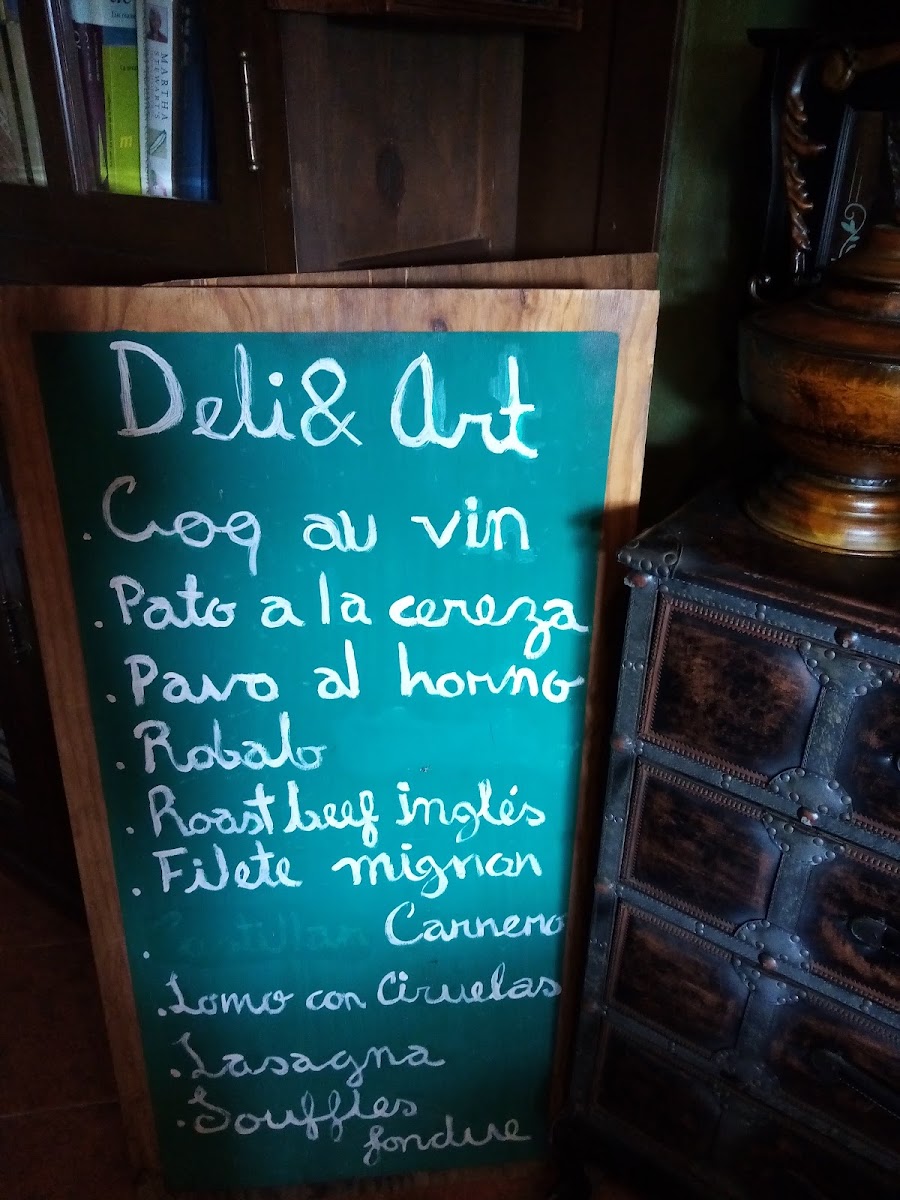 MARTHA
STEWART'S
Deli & Art
. Coq au vin
. Pato a la cereza
. Pavo al horno
. Robalo
. Roast beef inglés
. Filete mignon
. Carnero
. Lomo con Ciruelas
. Lasagna
. Souffles
fondue